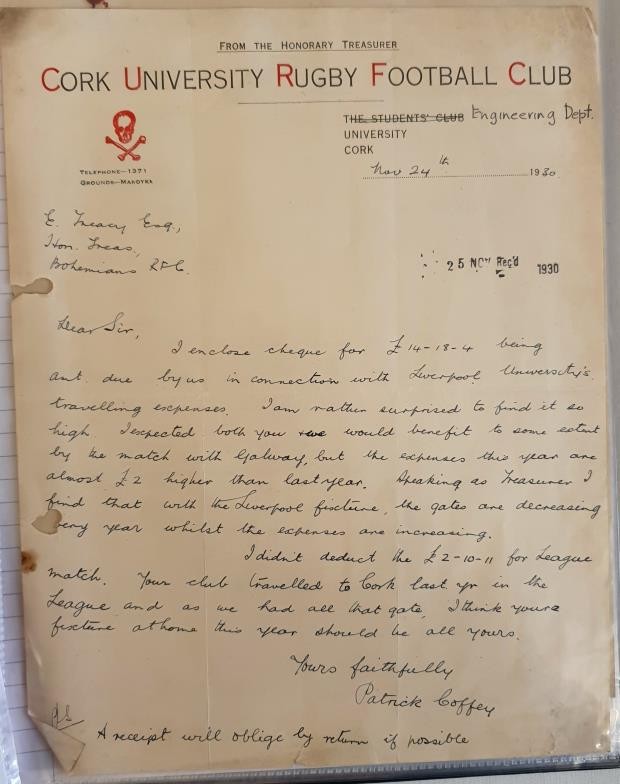 FROM THE HONORARY TREASURER
CORK UNIVERSITY RUGBY FOOTBALL CLUB
THE STUDENTS' CLUB Engineering Dept.
UNIVERSITY
CORK
TELEPHONE—1371
GROUNDS—MARDYKE
Nov 24th 1930
E. Treacy Esq.,
Hon. Treas.,
Bohemians R.F.C.
25 NOV Rec'd 1930
Dear Sir,
I enclose cheque for £14-18-4 being
amt. due by us in connection with Liverpool University's
travelling expenses. I am rather surprised to find it so
high. I expected both you & we would benefit to some extent
by the match with Galway, but the expenses this year are
almost £2 higher than last year. Speaking as Treasurer I
find that with the Liverpool fixture, the gates are decreasing
every year whilst the expenses are increasing.
I didn't deduct the £2-10-11 for League
match. Your club travelled to Cork last yr in the
League and as we had all that gate, I think your
fixture at home this year should be all yours.
Yours faithfully
Patrick Coffey
PS
A receipt will oblige by return if possible